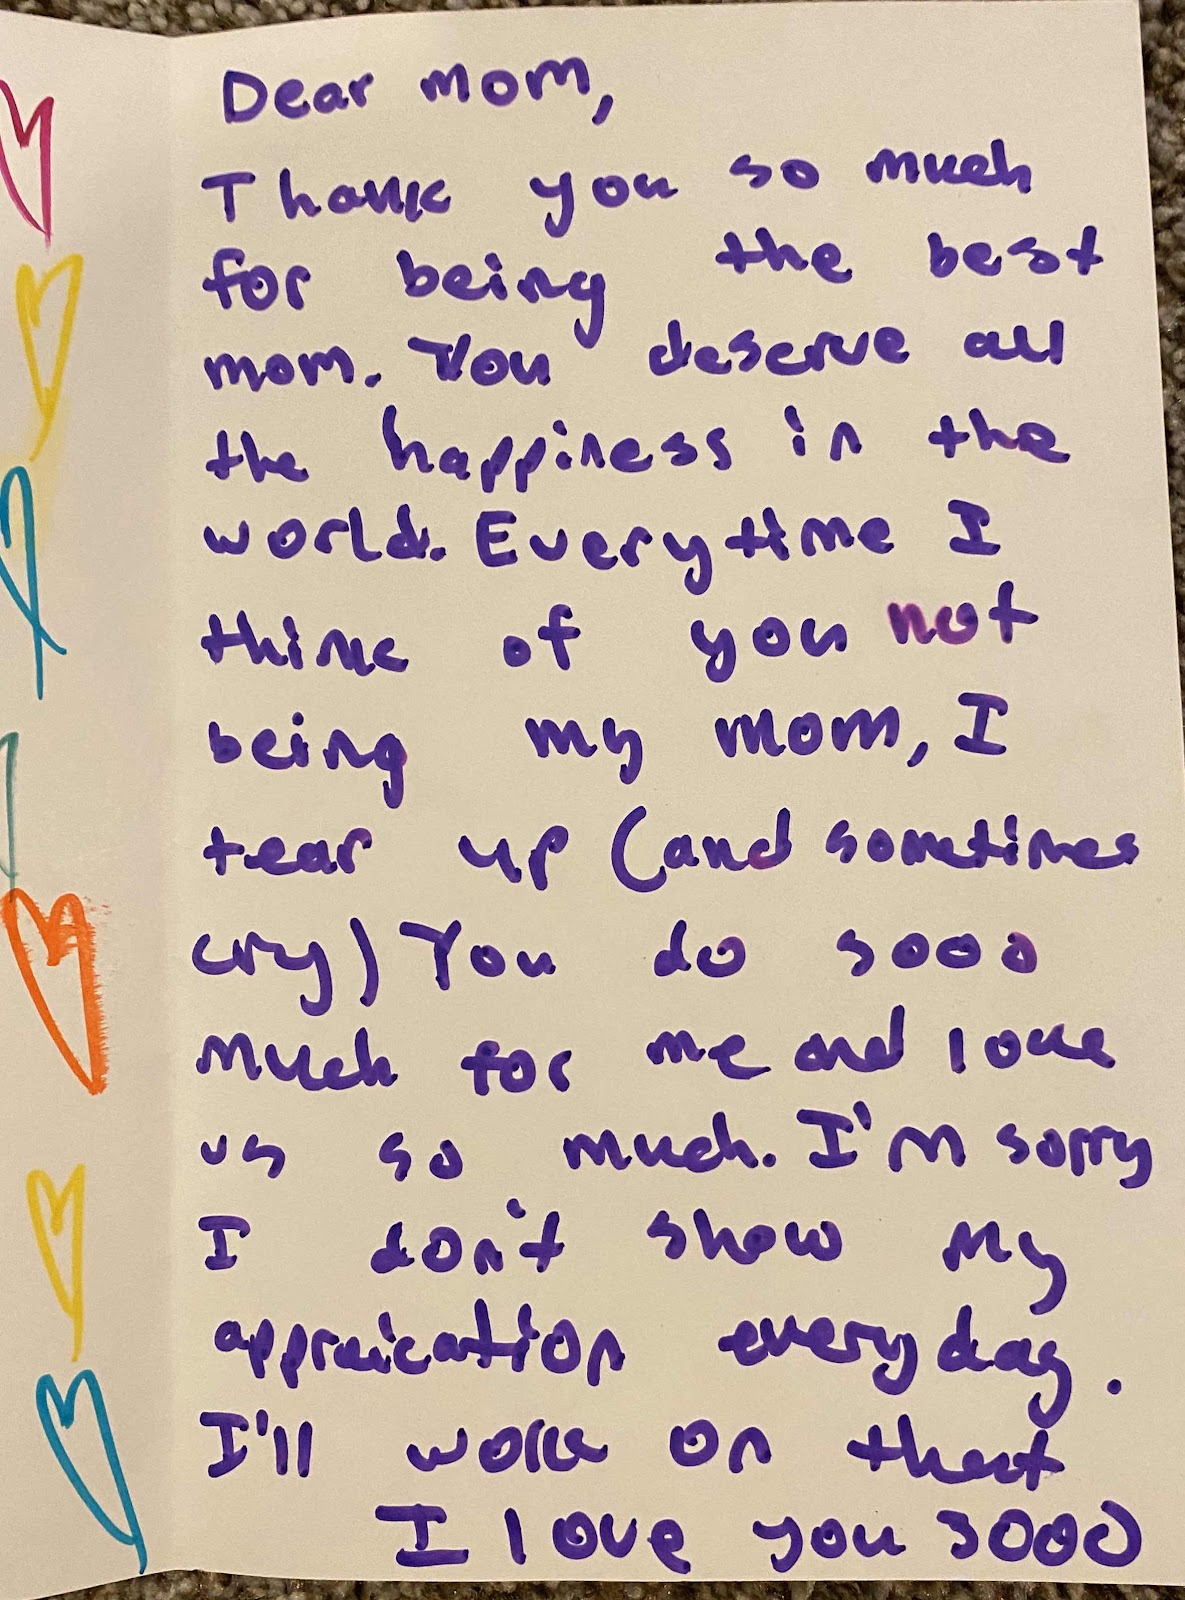 Dear mom,
Thank you so much
for being the best
mom. You deserve all
the happiness in the
world. Everytime I
think of you not
being my mom, I
tear up (and sometimes
cry) You do sooo
much for me and love
us so much. I'm sorry
I don't show my
appraication everyday.
I'll work on that
I love you sooo